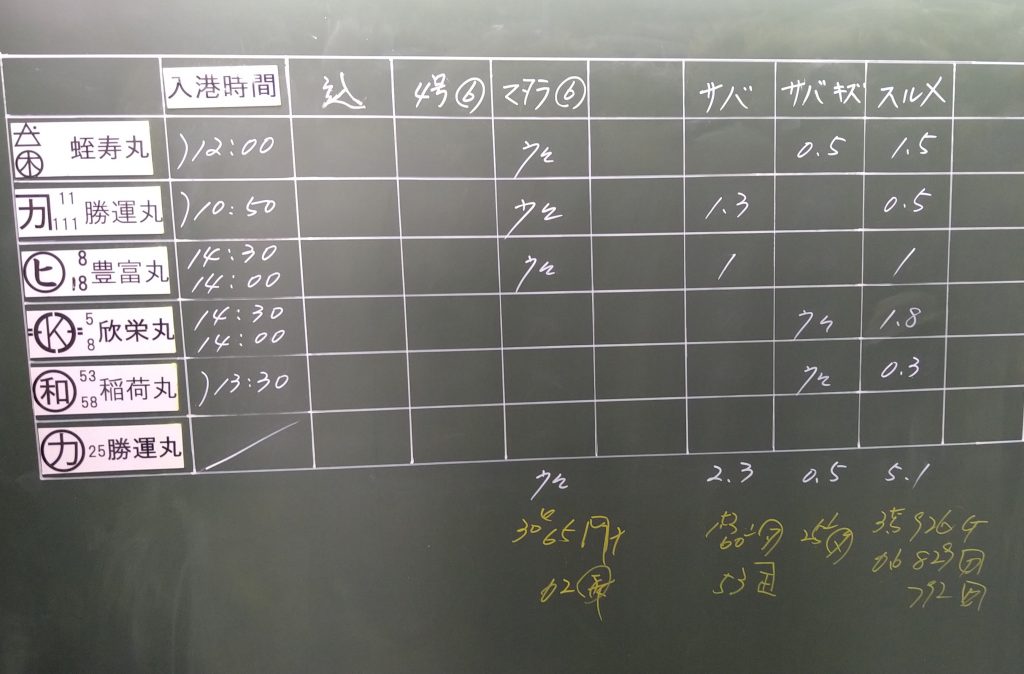 入港時間 込 4号⑥ マダラ⑥ サバ サバキズ スルメ
木 蛭寿丸 )12:00 ウヒ 0.5 1.5
カ 11 111 勝運丸 )10:50 ウヒ 1.3 0.5
ヒ 8 18 豊富丸 14:30 14:00 ウヒ 1 1
K 5 8 欣栄丸 14:30 14:00 ウヒ 1.8
和 53 58 稲荷丸 )13:30 ウヒ 0.3
カ 25 勝運丸
ウヒ 2.3 0.5 5.1